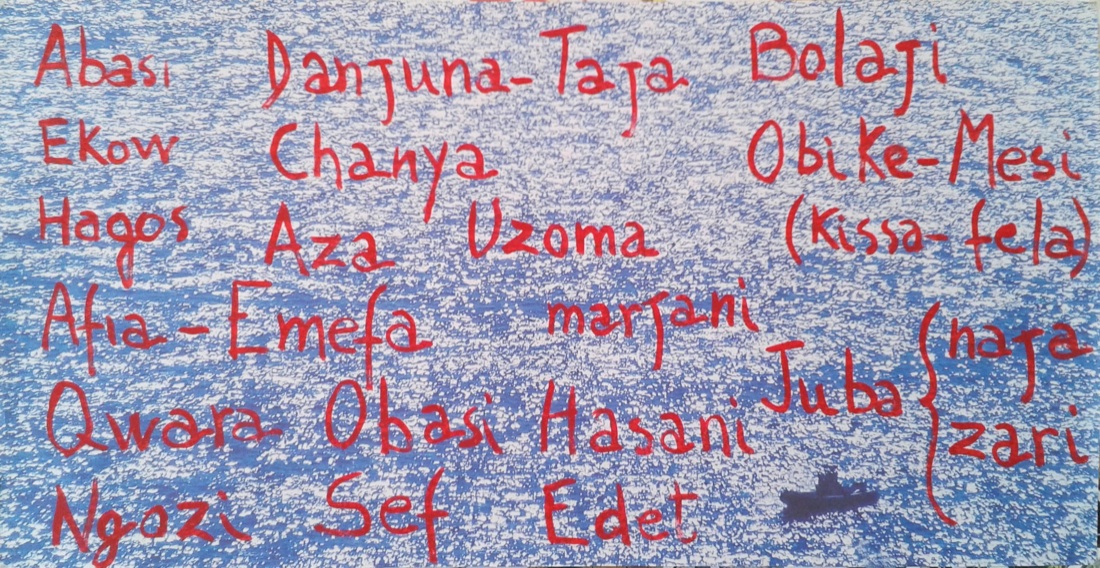 Abasi Danjuna-Taja Bolaji
Ekow Chanya Obike-Mesi
Hagos Aza Uzoma (Kissa-fela)
Afia-Emefa marjani
Juba { naja
zari
Qwara Obasi Hasani
Ngozi Sef Edet